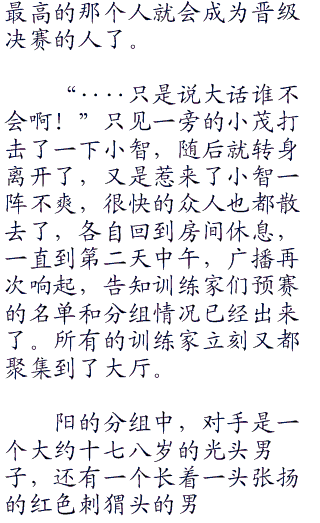 最高的那个人就会成为晋级
决赛的人了。
“····只是说大话谁不
会啊！”只见一旁的小茂打
击了一下小智，随后就转身
离开了，又是惹来了小智一
阵不爽，很快的众人也都散
去了，各自回到房间休息，
一直到第二天中午，广播再
次响起，告知训练家们预赛
的名单和分组情况已经出来
了。所有的训练家立刻又都
聚集到了大厅。
阳的分组中，对手是一
个大约十七八岁的光头男
子，还有一个长着一头张扬
的红色刺猬头的男